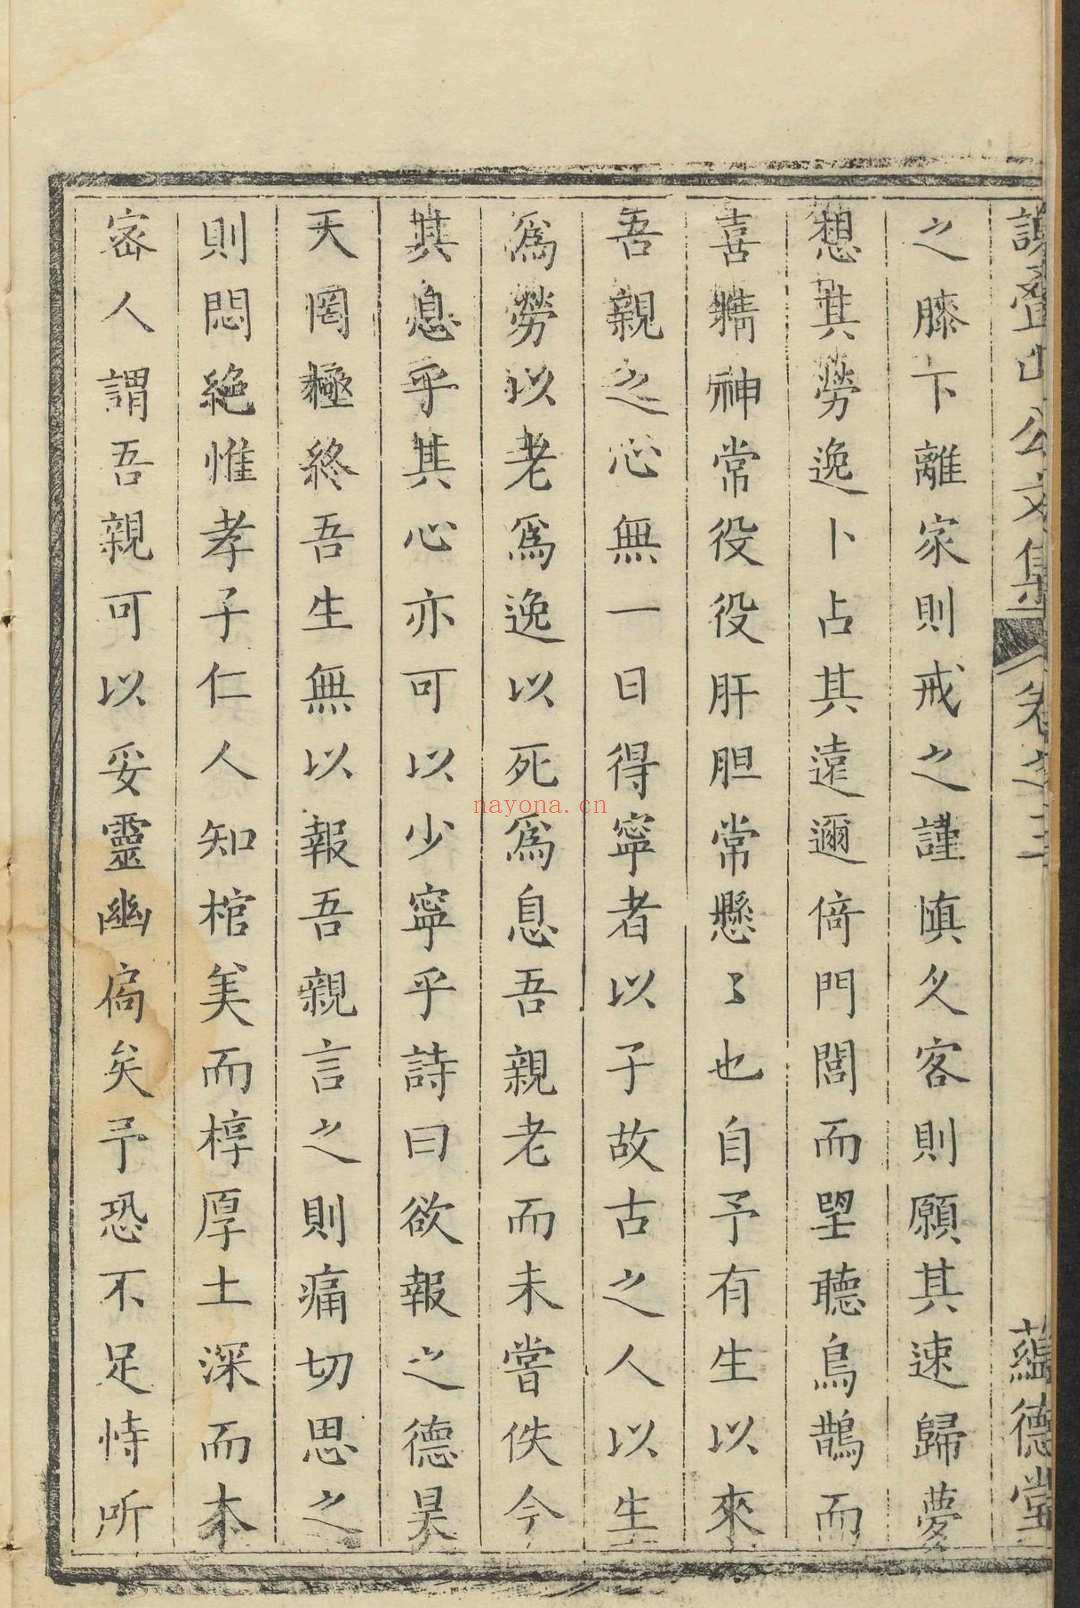 謝疊山公文集 卷之三 蘊德堂
之膝下離家則戒之謹慎久客則願其速歸夢
想其勞逸卜占其遠邇倚門閭而望聽烏鵲而
喜精神常役役肝胆常懸〻也自予有生以來
吾親之心無一日得寧者以子故古之人以生
爲勞以老爲逸以死爲息吾親老而未嘗佚今
其息乎其心亦可以少寧乎詩曰欲報之德昊
天罔極終吾生無以報吾親言之則痛切思之
則悶絶惟孝子仁人知棺美而椁厚土深而木
密人謂吾親可以妥靈幽扃矣予恐不足恃所
nayona.cn